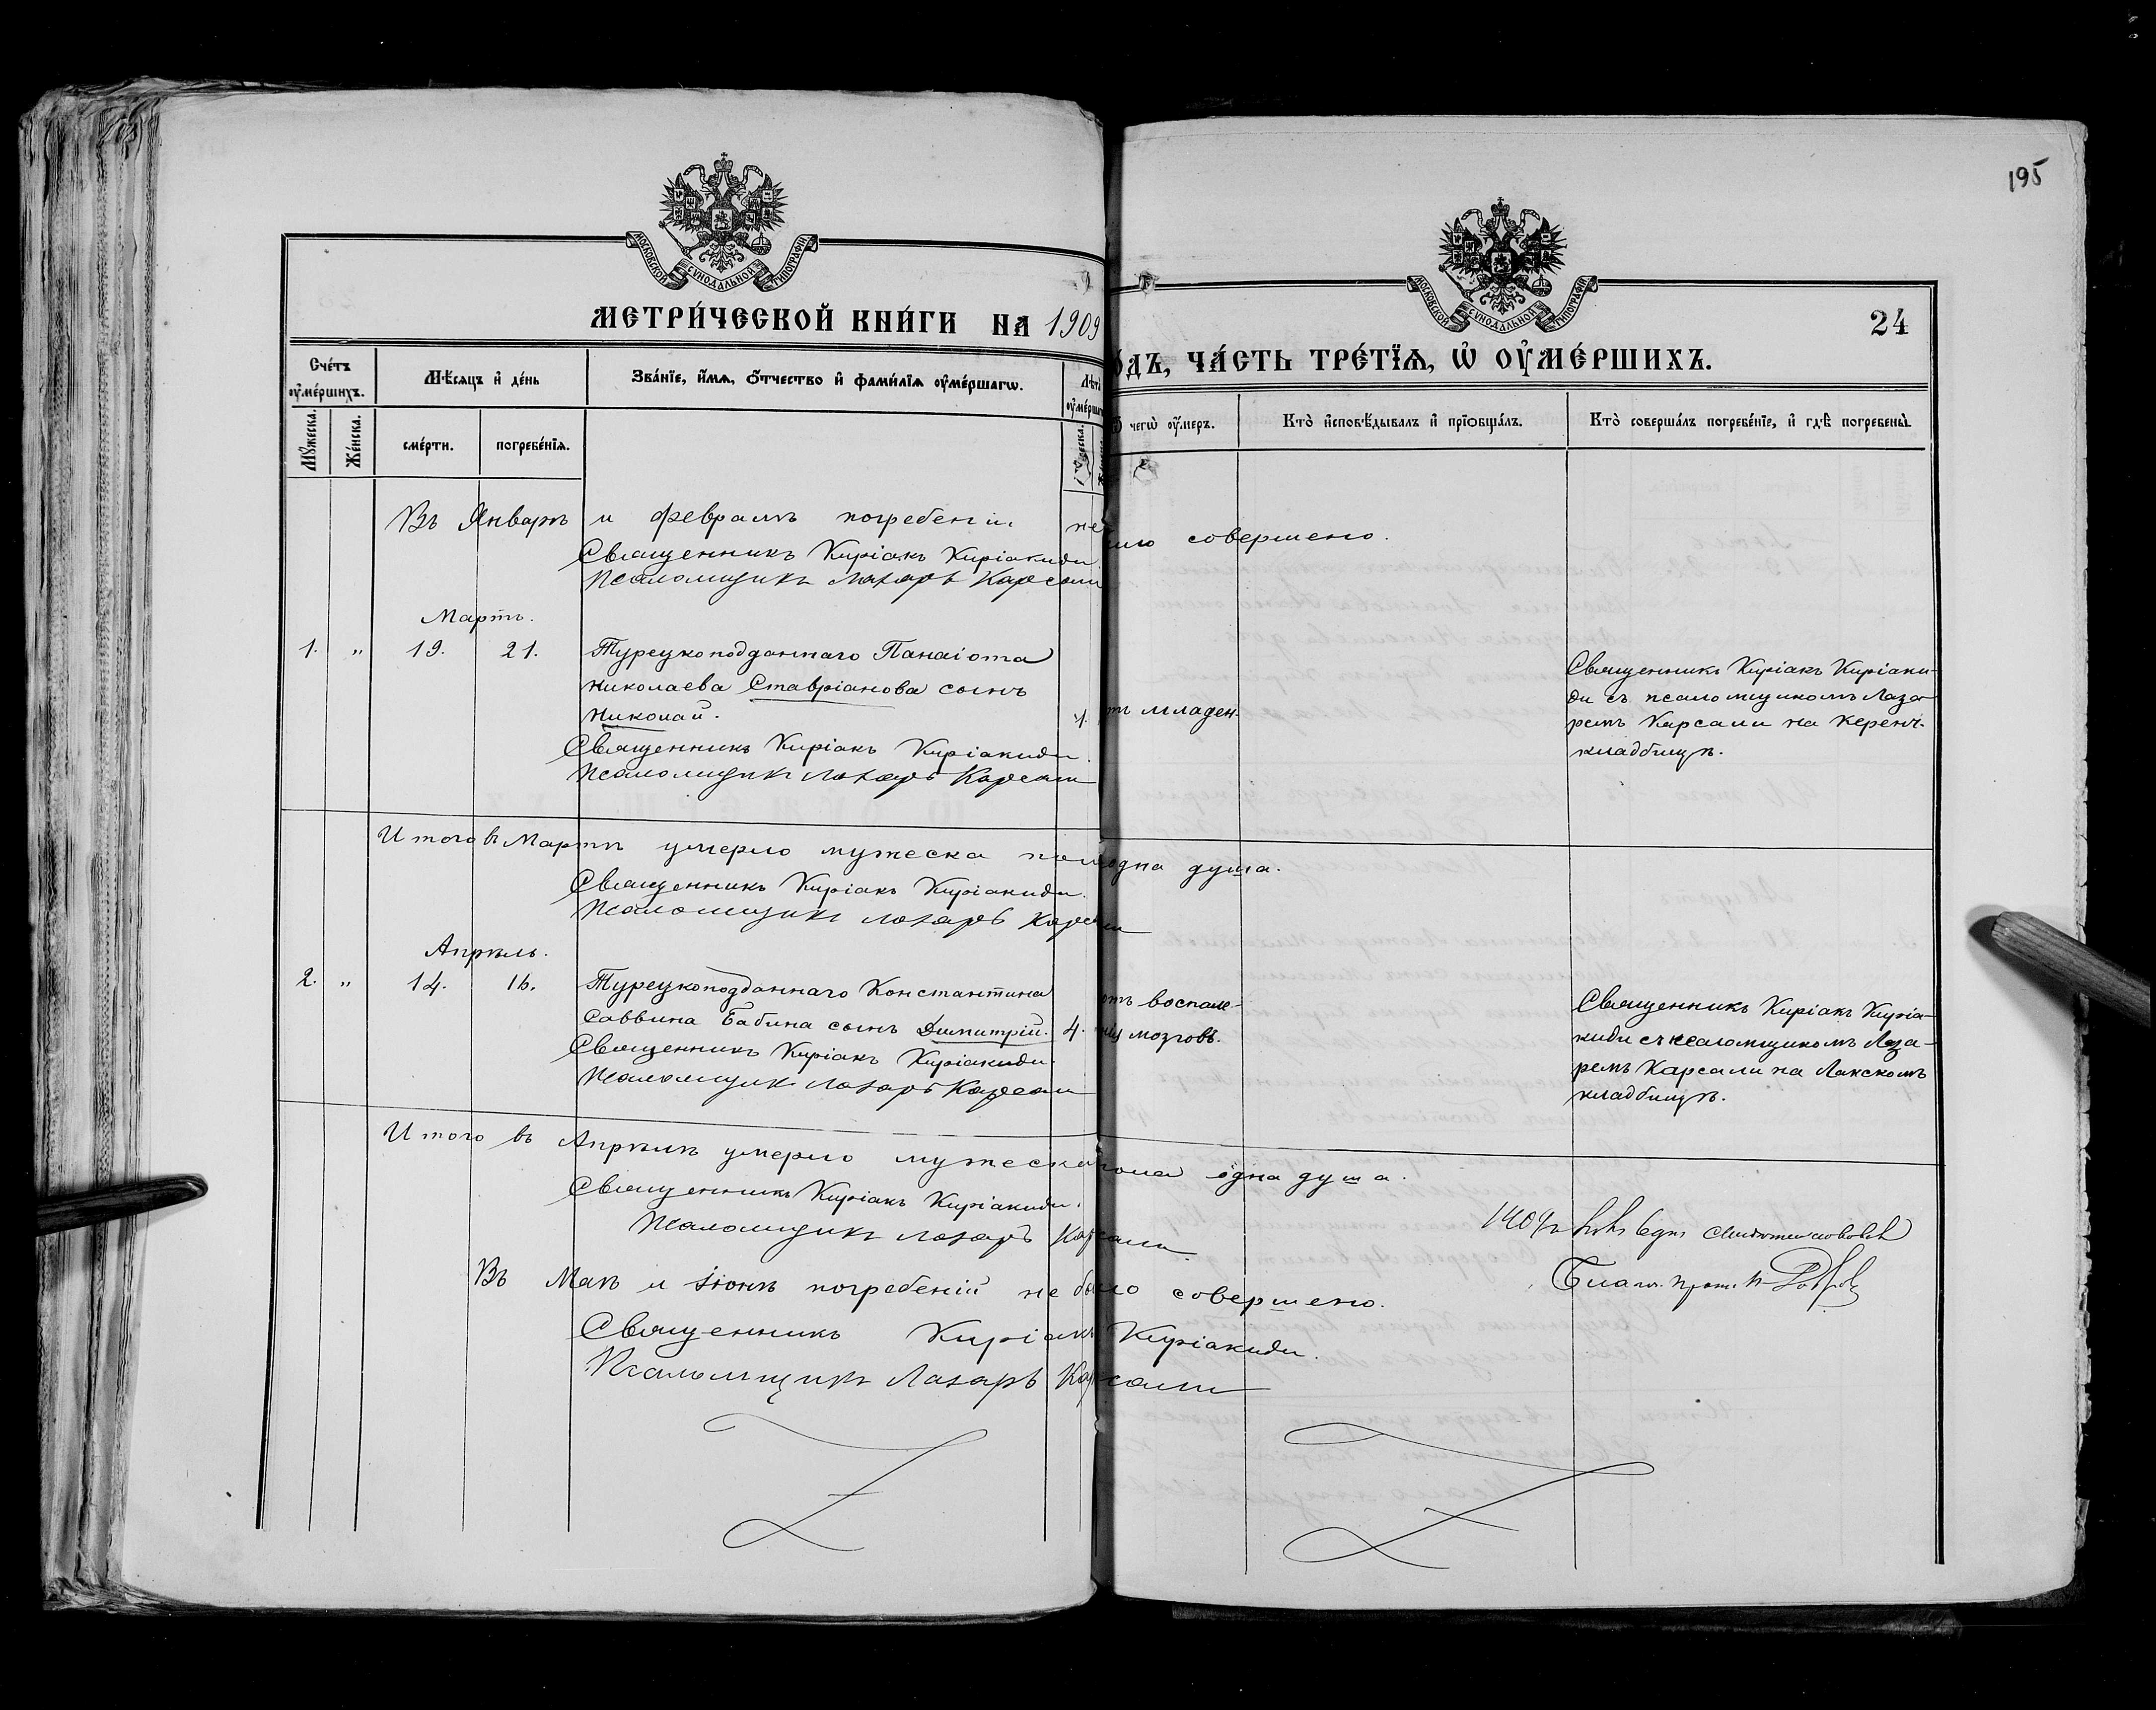 195
МОСКОВСКОЙ СѴНОДАЛЬНОЙ ТИПОГРАФІИ
МОСКОВСКОЙ СѴНОДАЛЬНОЙ ТИПОГРАФІИ
24
МЕТРИ́ЧЕСКОЙ КНИ́ГИ НА 1909
ОДЪ, ЧА́СТЬ ТРЕ́ТЇѦ, Ѡ ОУ҆МЕ́РШИХЪ.
Сче́тъ оу҆ме́ршихъ.
Мѣ́сяцъ и҆ де́нь
Зва́нїе, и҆́мѧ, ѻ҆́тчество и҆ фами́лїѧ оу҆ме́ршагѡ.
Лѣта
оу҆ме́рша
Ѿ чегѡ̀ оу҆́меръ.
Кто̀ и҆сповѣ́дывалъ и҆ прїѡбща́лъ.
Кто̀ соверша́лъ погребе́нїе, и҆ гдѣ̀ погребены̀.
Мꙋ́жеска.
Же́нска.
сме́рти.
погребе́нїѧ.
Въ Январѣ и Февралѣ погребеній не было совершено.
Священникъ Киріакъ Киріакиди
Псаломщикъ Лазарь Карсали
Мартъ.
1. „ 19. 21. Турецкоподданнаго Панаіота
Николаева Ставріанова сынъ
Николай.
младен.
Священникъ Киріакъ Киріакиди.
Псаломщикъ Лазарь Карсали
Священникъ Киріакъ Киріаки-
ди съ псаломщикомъ Лаза-
ремъ Карсали на Керенч.
кладбищѣ.
Итого въ Мартѣ умерло мужеска пола одна душа.
Священникъ Киріакъ Киріакиди.
Псаломщикъ Лазарь Карсали
Апрѣль.
2. „ 14. 16. Турецкоподданнаго Константина
Саввина Бабина сынъ Димитрій. 4.
отъ воспале-
нія мозговъ.
Священникъ Киріакъ Киріакиди.
Псаломщикъ Лазарь Карсали
Священникъ Киріакъ Киріа-
киди съ псаломщикомъ Лаза-
ремъ Карсали на Лакскомъ
кладбищѣ.
Итого въ Апрѣлѣ умерло мужеска пола одна душа.
Священникъ Киріакъ Киріакиди.
Псаломщикъ Лазарь Карсали
Въ Маѣ и Іюнѣ погребеній не было совершено.
Священникъ Киріакъ Киріакиди.
Псаломщикъ Лазарь Карсали
1909